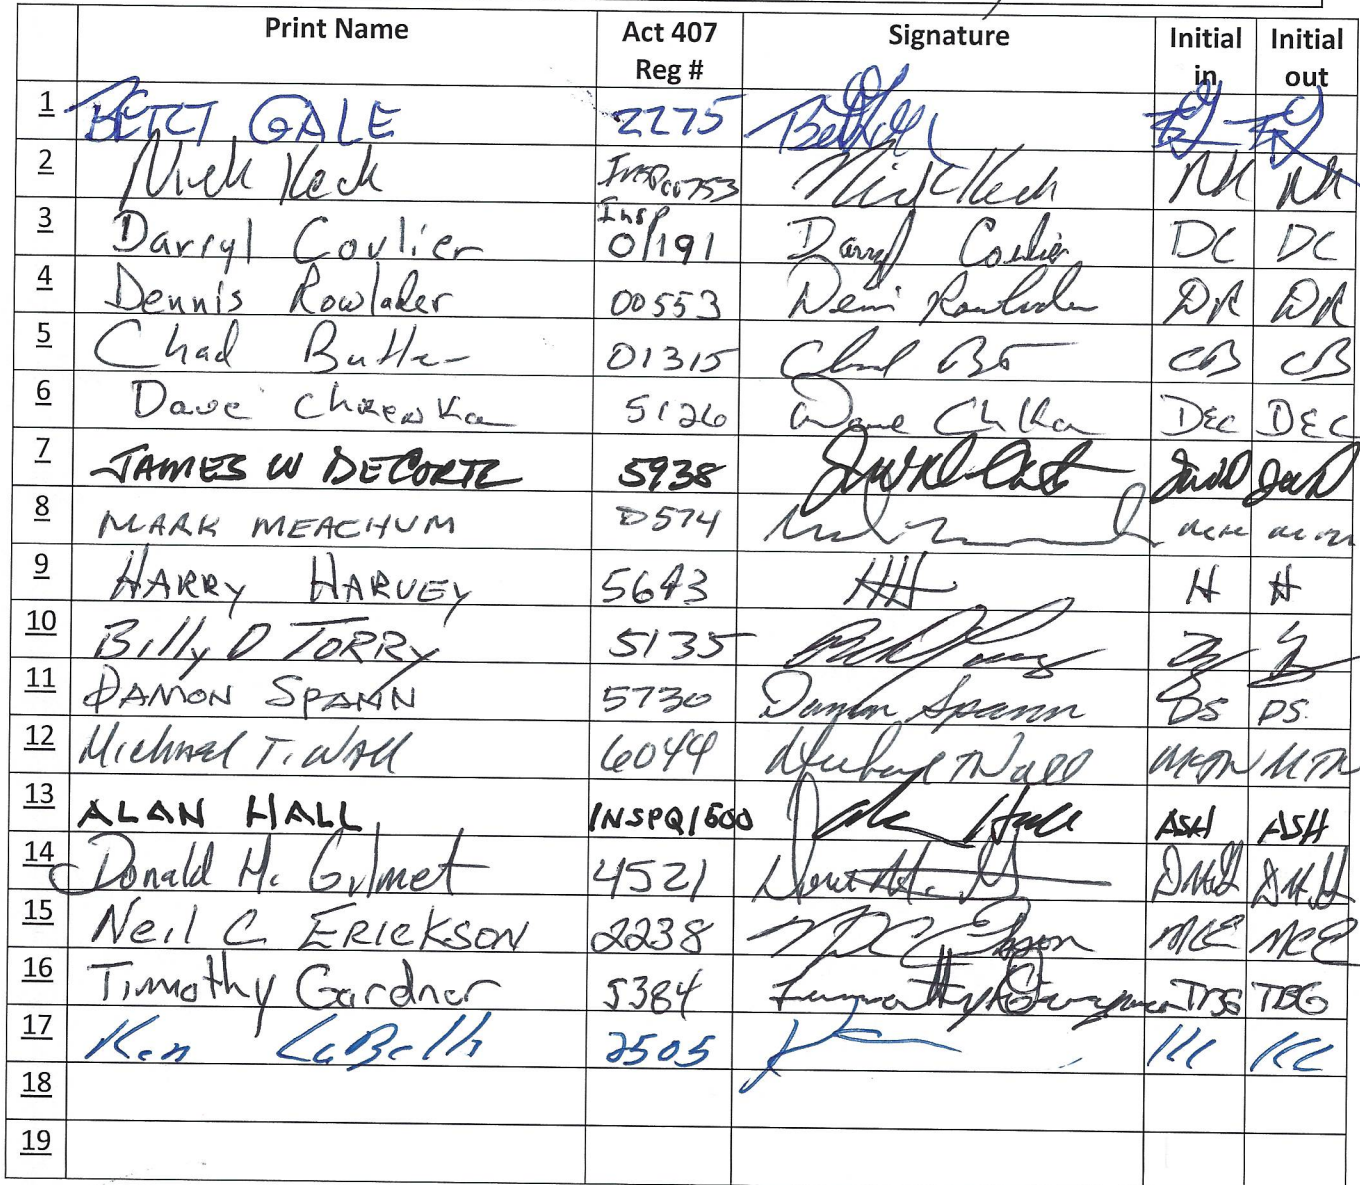 Print Name Act 407 Reg # Signature Initial in Initial out
1 BETTY GALE 2275
2 Nick Keck Insp 00753 Nick Keck NK NK
3 Darryl Coulier Insp 01191 Darryl Coulier DC DC
4 Dennis Rowlader 00553 DR DR
5 Chad Butler 01315 CB CB
6 Dave Chrenka 5126 DEC DEC
7 JAMES W DECORTE 5938
8 MARK MEACHUM 0574
9 HARRY HARVEY 5643 HH H H
10 Billy D TORRY 5135
11 DAMON SPANN 5730 Damon Spann DS DS
12 Michael T. Wall 6044 Michael T Wall MTW MTW
13 ALAN HALL INSP01500 Hall ASH ASH
14 Donald H. Gilmet 4521
15 Neil C ERICKSON 2238 NCE NCE
16 Timothy Gardner 5384 TBG TBG
17 Ken LaBelle 2505
18
19